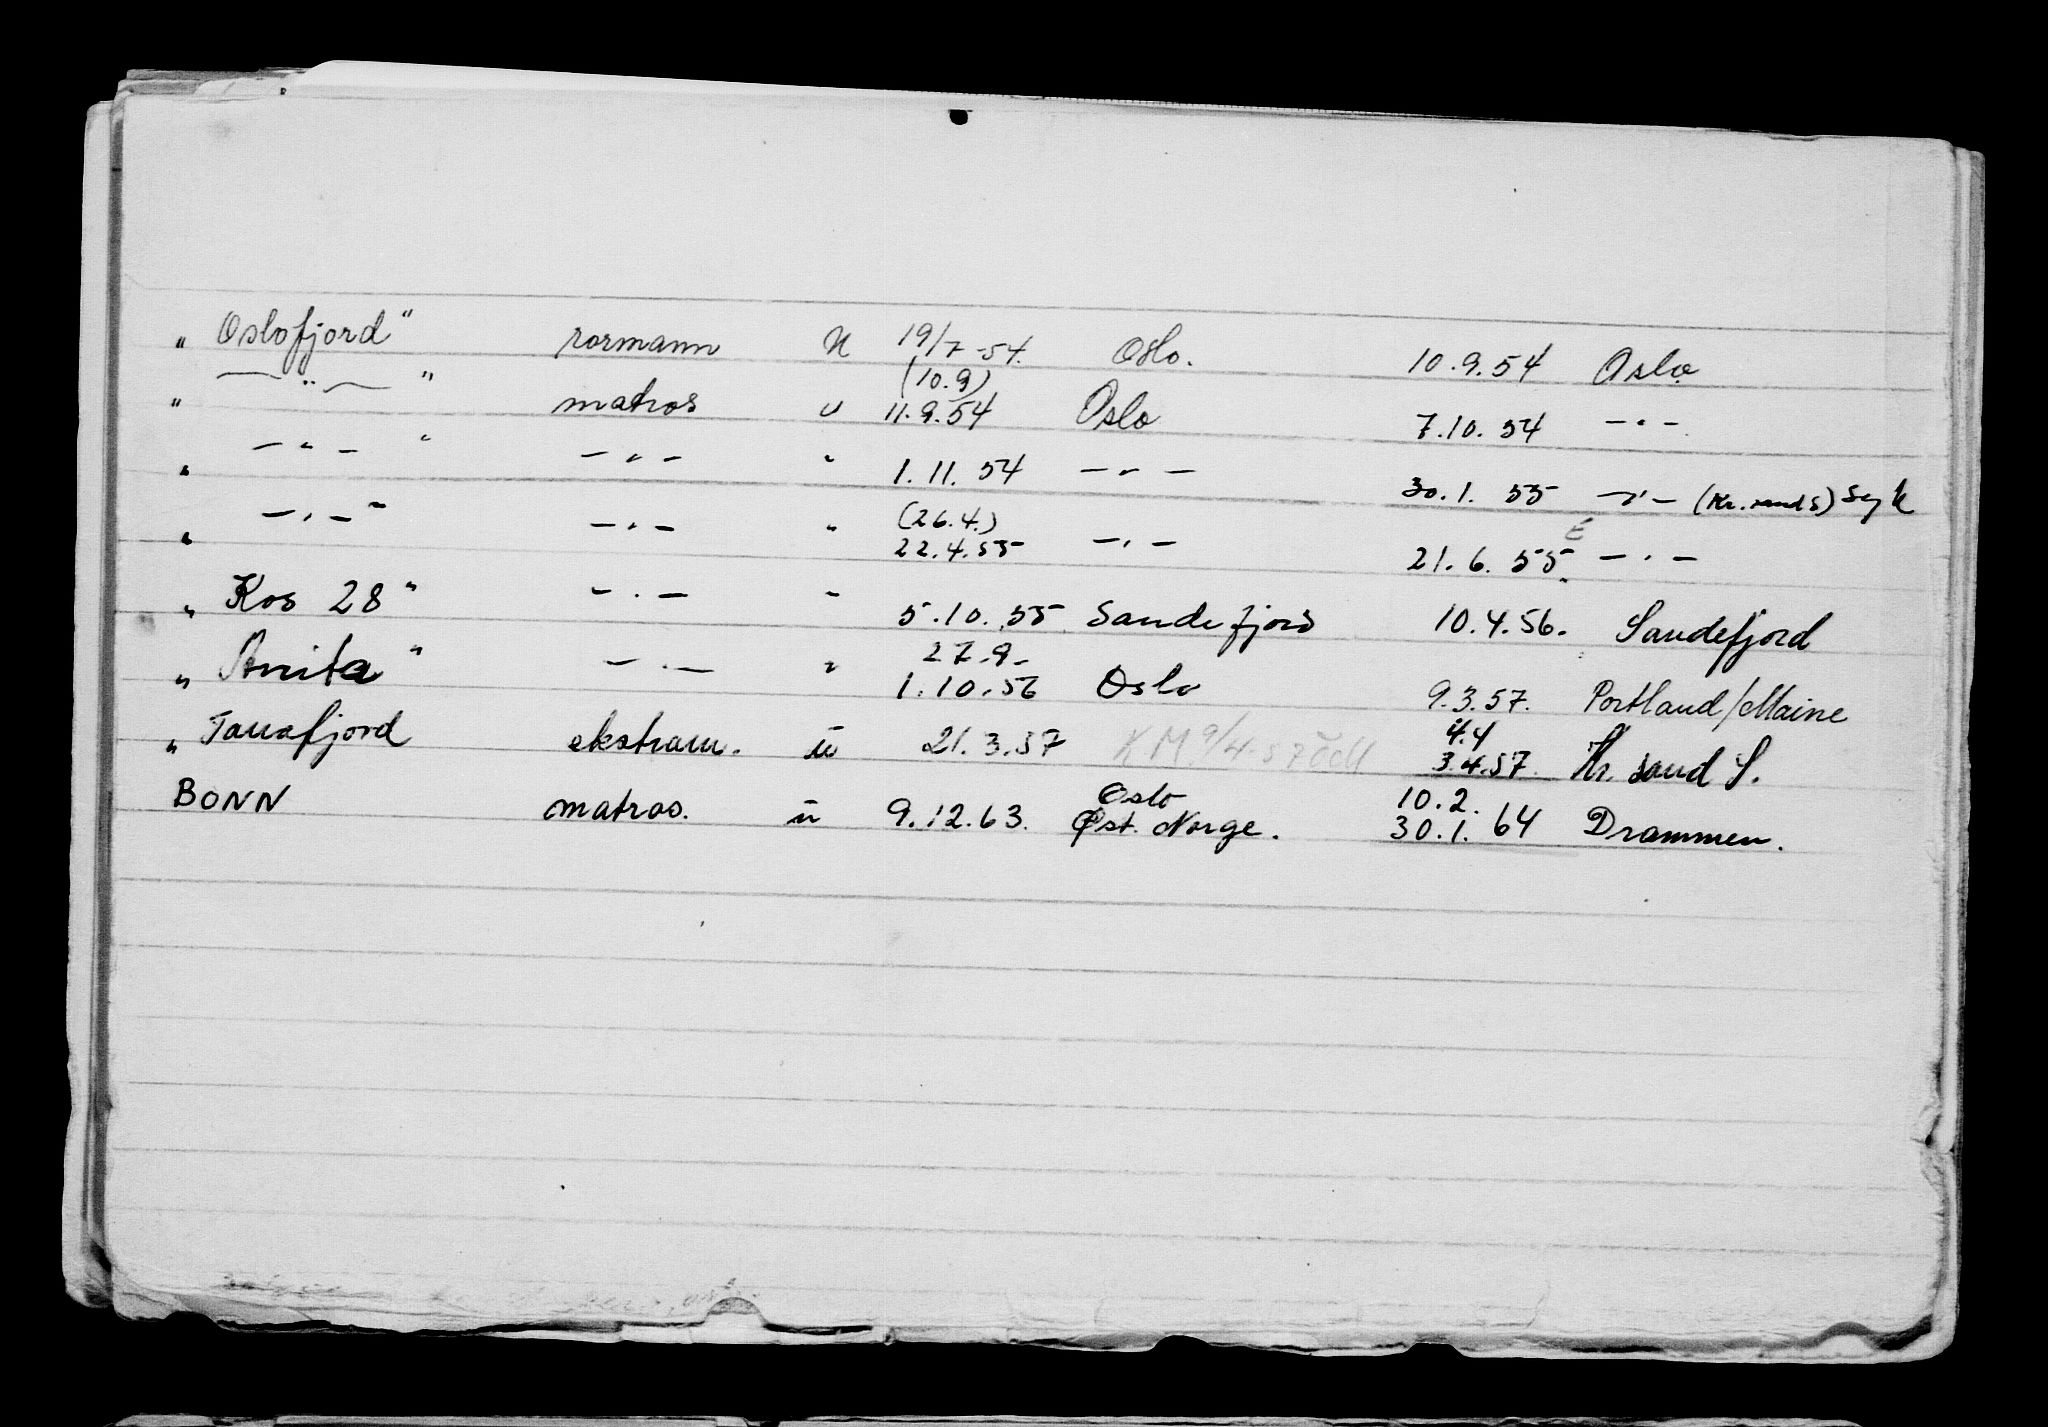 „ Oslofjord" rormann U 19/7-54. Oslo. 10.9.54 Oslo
(10.9)
„ —"— " matros u 11.9.54 Oslo 7.10.54 -"-
„ -"- " -"- " 1.11.54 -"- 30.1.55 -"- (Kr.sand S) Syk
(26.4.)
„ -"- " -"- " 22.4.55 -"- 21.6.55 -"-
„ Kos 28" -"- " 5.10.55 Sandefjord 10.4.56. Sandefjord
27.9-
„ Anita" -"- " 1.10.56 Oslo 9.3.57. Portland/Maine
4.4
„ Tanafjord ekstram. u 21.3.57 KM 9/4-57 3.4.57. Kr. sand S.
Oslo 10.2.
BONN matros. u 9.12.63. Øst. Norge. 30.1.64 Drammen.